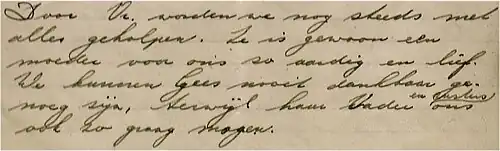 Door Vr. worden we nog steeds met
alles geholpen. Ze is gewoon een
moeder voor ons zo aardig en lief.
We kunnen Cees nooit dankbaar ge-
noeg zijn, terwijl haar Vader en zusters ons
ook zo graag mogen.